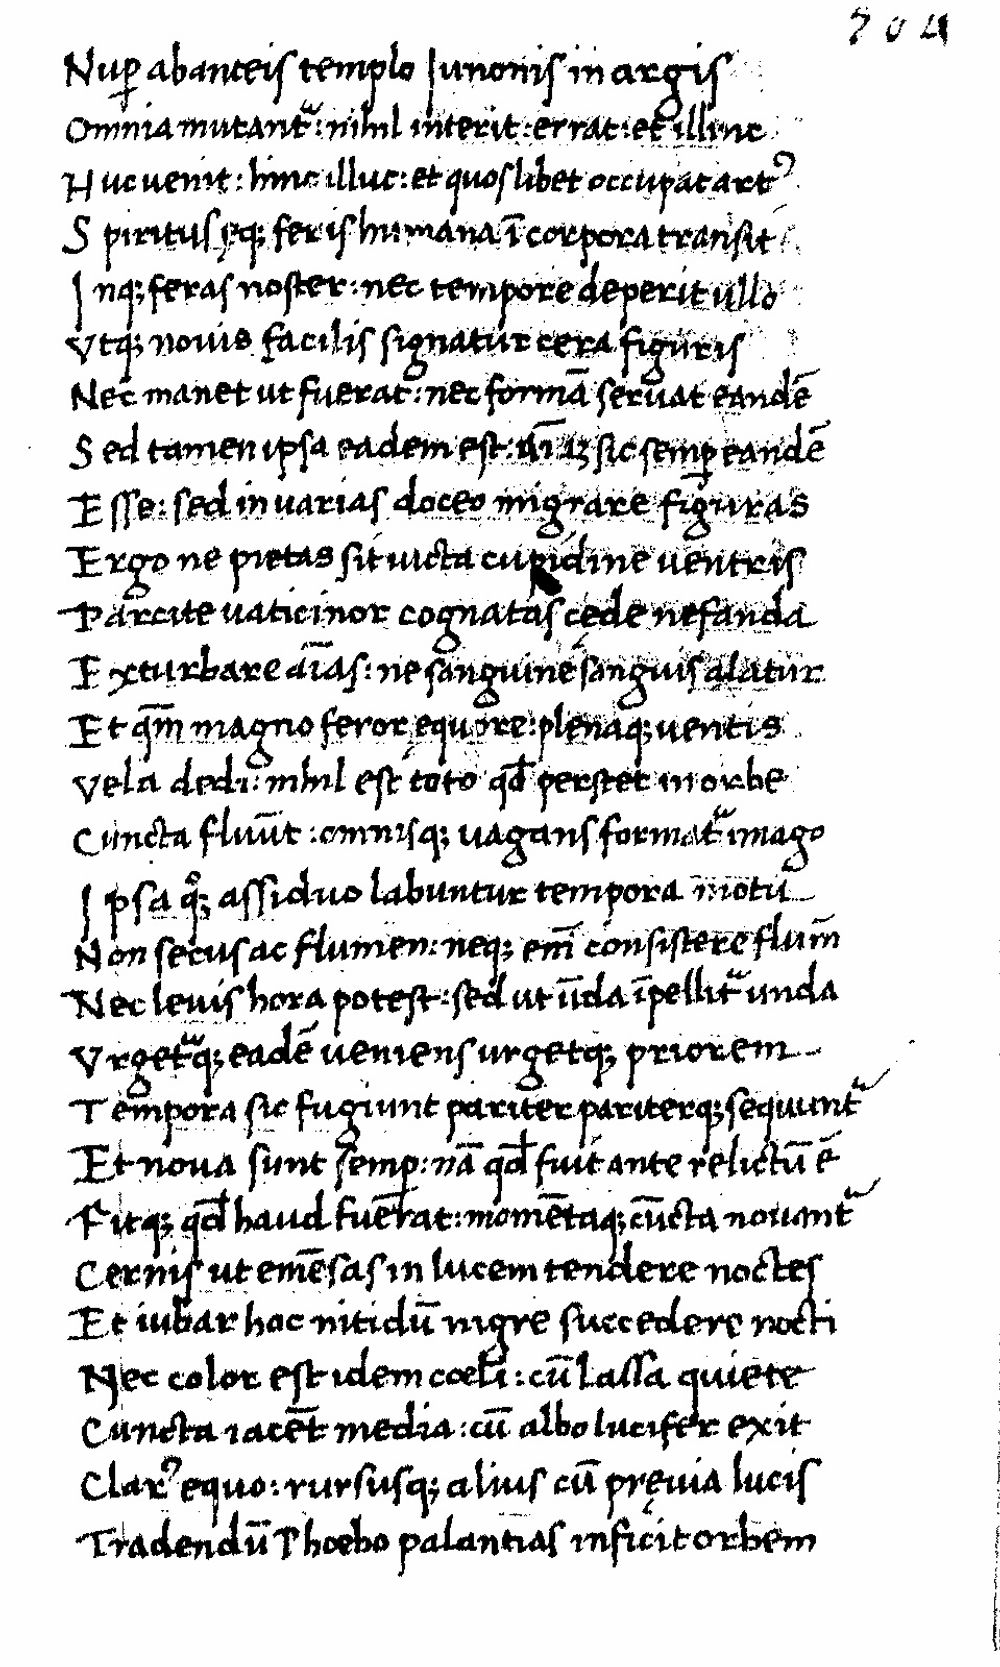 304
Nuꝑ abanteis templo Iunonis in argis
Omnia mutantᷣ: nihil interit: errat: et illinc
Huc venit: hinc illuc: et quoslibet occupat artꝰ
Spiritus ęqꝫ feris humana ī corpora transit
Inqꝫ feras noster: nec tempore deperit ullo
Vtqꝫ nouis facilis signatur cera figuris
Nec manet ut fuerat: nec formā seruat eandē
Sed tamen ipsa eadem est: aīaꝫ sic semꝑ eandē
Esse: sed in uarias doceo migrare figuras
Ergo ne pietas sit uicta cupidine uentris
Parcite uaticinor cognatas cęde nefanda
Exturbare aīas: ne sanguine sanguis alatur
Et qm̄ magno feror ęquore: plenaqꝫ uentis
Vela dedi: nihil est toto qđ perstet in orbe
Cuncta fluūt: omnisqꝫ uagans formatᷣ imago
Ipsa qͦꝫ assiduo labuntur tempora motu
Non secus ac flumen: neqꝫ em̄ consistere flum̄
Nec leuis hora potest: sed ut ūda īpellitᷣ unda
Vrgetᷣqꝫ eadē ueniens urgetqꝫ priorem
Tempora sic fugiunt pariter pariterqꝫ sequuntᷣ
Et noua sunt semꝑ: nā qđ fuit ante relictū ē
Fitqꝫ qđ haud fuerat: momētaqꝫ cūcta nouantᷣ
Cernis ut emēsas in lucem tendere noctes
Et iubar hoc nitidū nigre succedere nocti
Nec color est idem cœli: cū lassa quiete
Cuncta iacēt media: cū albo lucifer exit
Clarꝰ equo: rursusqꝫ alius cū pręuia lucis
Tradendū Phoebo palantias inficit orbem